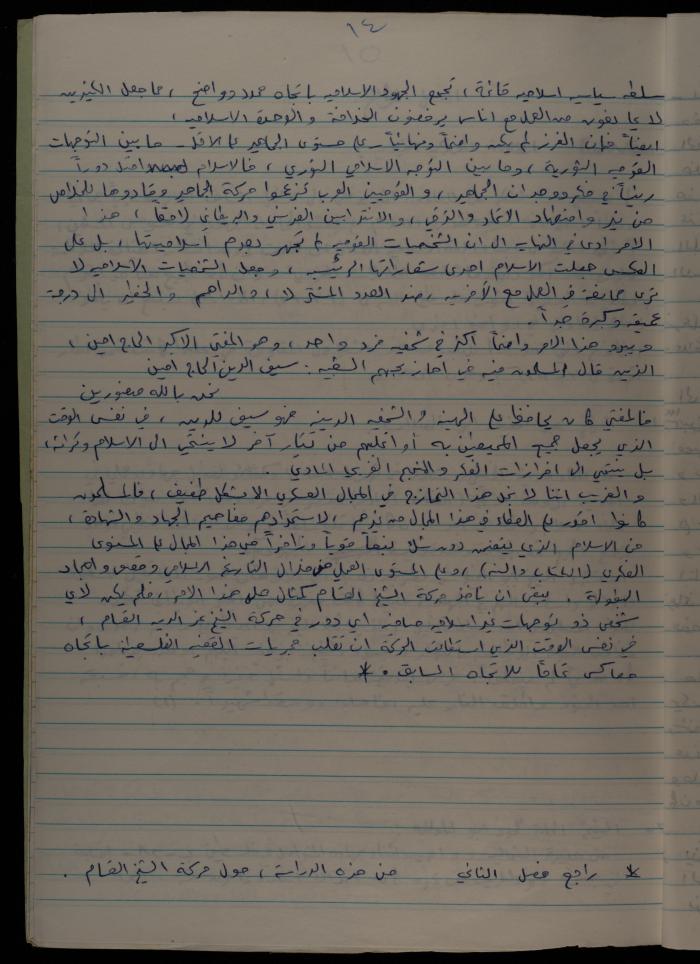 ١٤
سلطة سياسية اسلامية قائمة ، تجمع الجهود الاسلامية باتجاه محدد وواضح ، مما جعل الكثيرين
لا يمانعون من العمل مع اناس يرفضون الخلافة والوحدة الاسلامية .
ايضاً فإن الفرز لم يكن واضحاً ونهائياً على مستوى الجماهير على الاقل ما بين التوجهات
القومية الثورية ، وما بين التوجه الاسلامي الثوري ، فالاسلام احتل دوراً
رئيسياً في فكر ووجدان الجماهير ، والقوميين العرب تزعموا حركة الجماهير وقادوها للخلاص
من نير واضطهاد الاتحاد والترقي ، والانتدابين الفرنسي والبريطاني لاحقاً ، هذا
الامر ادى في النهاية الى ان الشخصيات القومية لم تجهر بعدم اسلاميتها ، بل على
العكس جعلت الاسلام احدى شعاراتها الرئيسية ، وجعل الشخصيات الاسلامية لا
ترى ممانعة في العمل مع الأخرين ، ضد العدو المشترك ، والداهم والخطير الى درجة
عميقة وكبيرة جداً .
ويبدو هذا الامر واضحاً اكثر في شخصية فرد واحد ، وهو المفتي الاكبر الحاج امين ،
الذين قال المسلمون فيه في الشعبية : سيف الدين الحاج امين
نحن بالله منصورين
فالمفتي كان يحافظ على الهيئة والشخصية الدينية فهو سيف للدين ، في نفس الوقت
الذي يجعل جميع المحيطين به أو اغلبهم من تيار آخر لا ينتمي الى الاسلام وتراثه ،
بل ينتمي الى افرازات الفكر والنهج الغربي المادي .
والغريب اننا لا نجد هذا التمازج في المجال العسكري الا بشكل طفيف ، فالمسلمون
كانوا اقدر على العطاء في هذا المجال من غيرهم ، لاستمدادهم مفاهيم الجهاد والشهادة ،
من الاسلام الذي يعتبر دون شك نبعاً قوياً وزاخراً في هذا المجال على المستوى
الفكري ( الكتاب والسنة ) ، وعلى المستوى العملي من خلال التاريخ الاسلامي وقصص وامجاد
البطولة . يبقى ان نأخذ حركة الشيخ القسام كمثال على هذا الامر ، فلم يكن لأي
شخص ذو توجهات غير اسلامية صافية أي دور في حركة الشيخ عز الدين القسام ،
في نفس الوقت الذي استطاعت الحركة ان تقلب مجريات القضية الفلسطينية باتجاه
معاكس تماماً للاتجاه السابق . *
* راجع فصل الثاني من هذه الدراسة ، حول حركة الشيخ القسام .